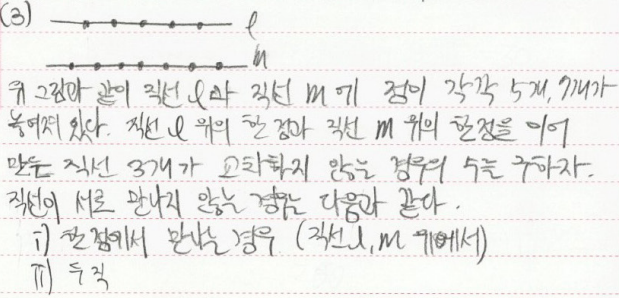 (3)
l
m
위 그림과 같이 직선 l과 직선 m에 점이 각각 5개, 7개가
놓여져 있다. 직선 l 위의 한 점과 직선 m 위의 한점을 이어
만든 직선 3개가 교차하지 않는 경우의 수를 구하자.
직선이 서로 만나지 않는 경우는 다음과 같다.
i) 한 점에서 만나는 경우 (직선 l, m 위에서)
ii) 두 직